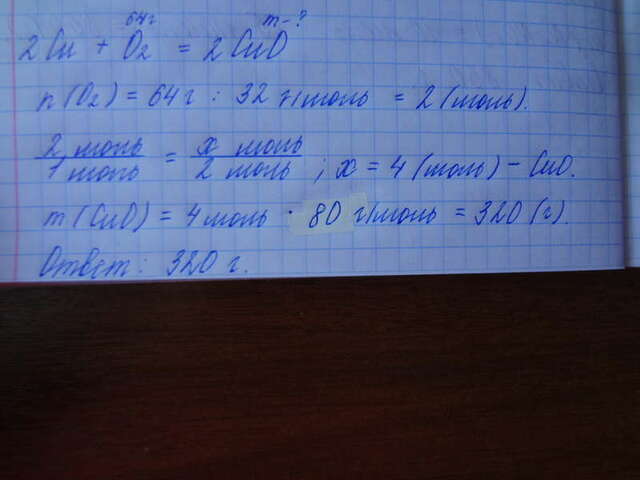 64г m-?
2Cu + O2 = 2CuO
n(O2) = 64г : 32 г/моль = 2(моль).
2 моль / 1 моль = x моль / 2 моль ; x = 4 (моль) - CuO.
m(CuO) = 4моль · 80 г/моль = 320(г).
Ответ: 320 г.